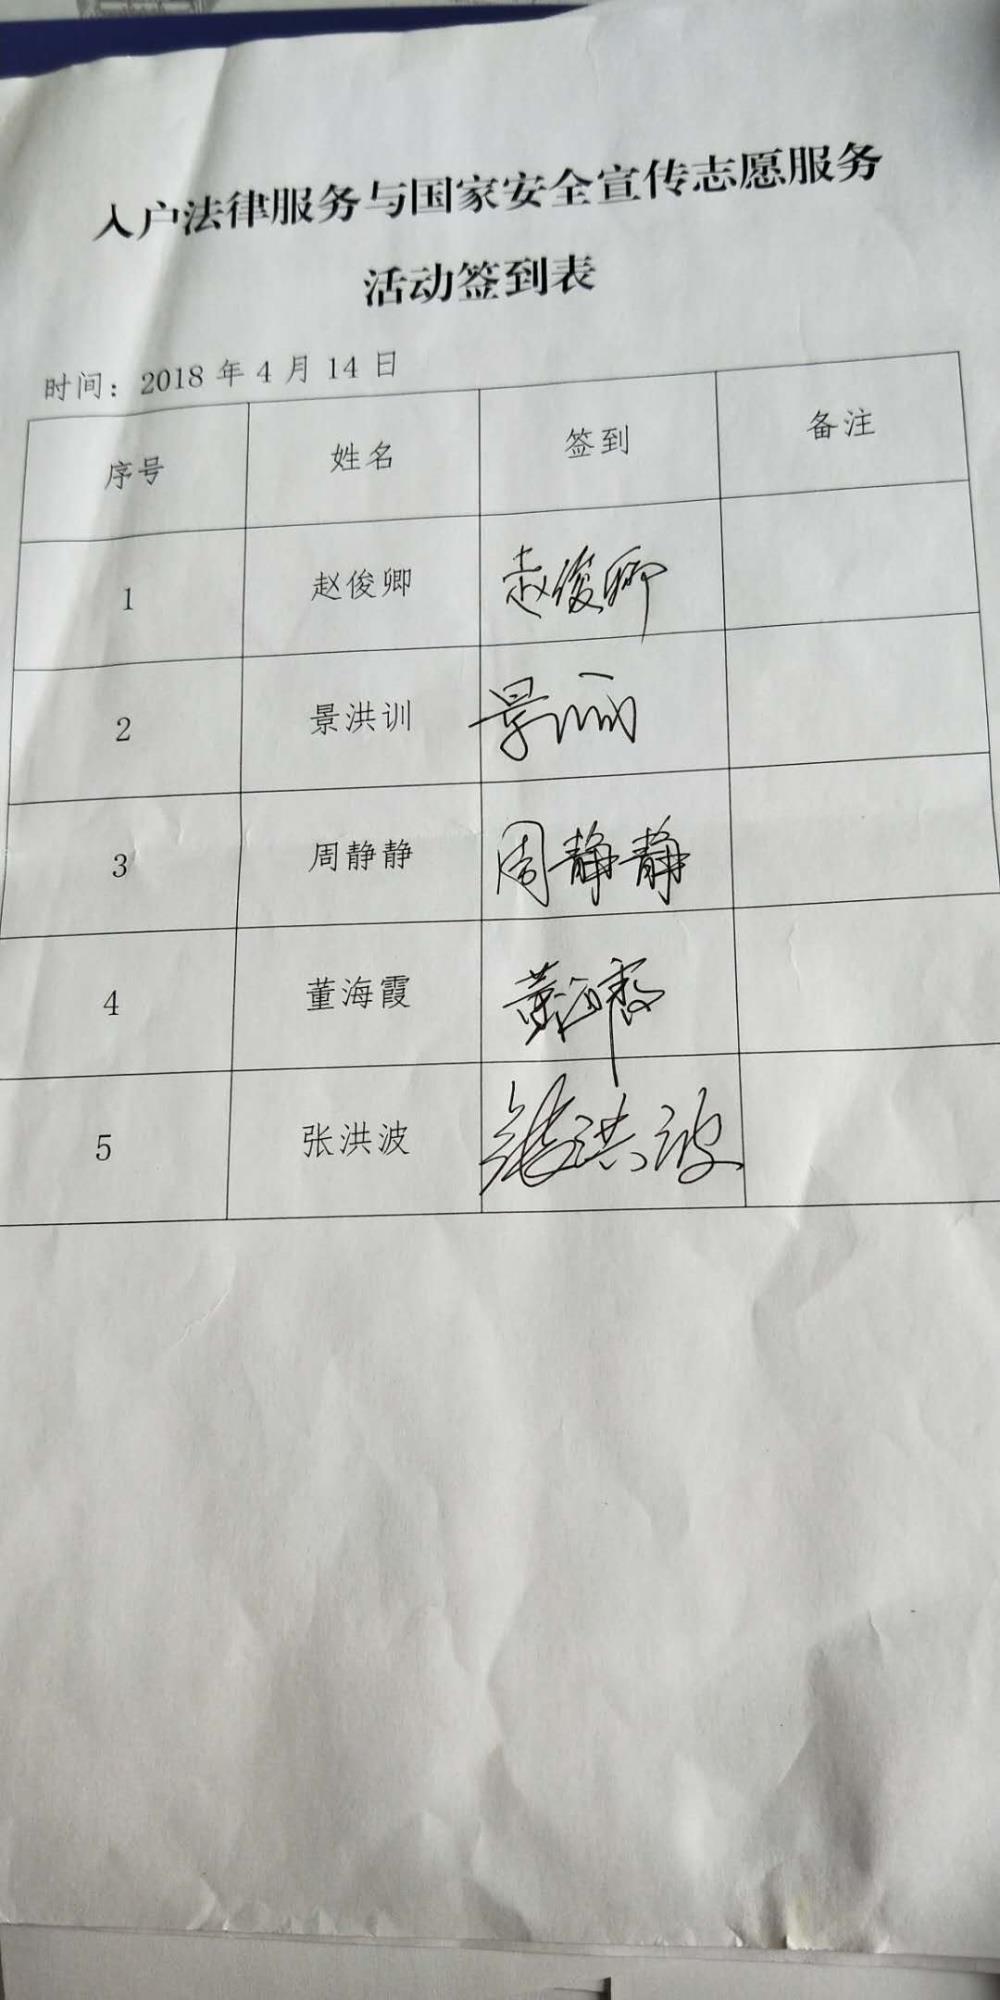 入户法律服务与国家安全宣传志愿服务
活动签到表
时间：2018 年 4 月 14 日
序号 姓名 签到 备注
1 赵俊卿 赵俊卿
2 景洪训 景
3 周静静 周静静
4 董海霞 董海霞
5 张洪波 张洪波